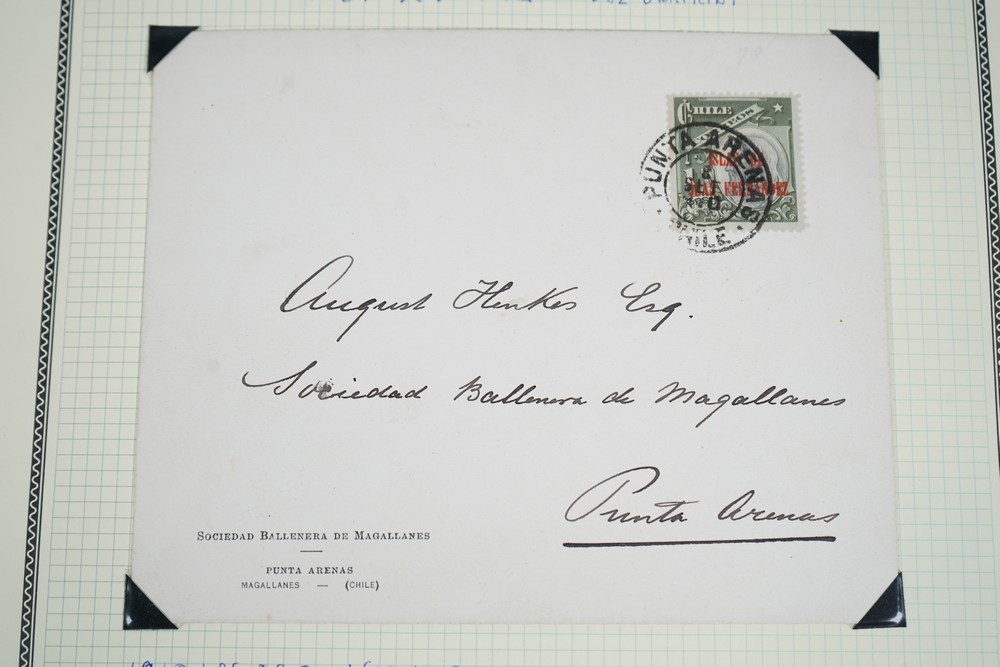 CHILE
CORREOS
ISLAS DE
JUAN FERNANDEZ
PUNTA ARENAS
CHILE
August Henkes Esq.
Sociedad Ballenera de Magallanes
Punta Arenas
SOCIEDAD BALLENERA DE MAGALLANES
PUNTA ARENAS
MAGALLANES — (CHILE)